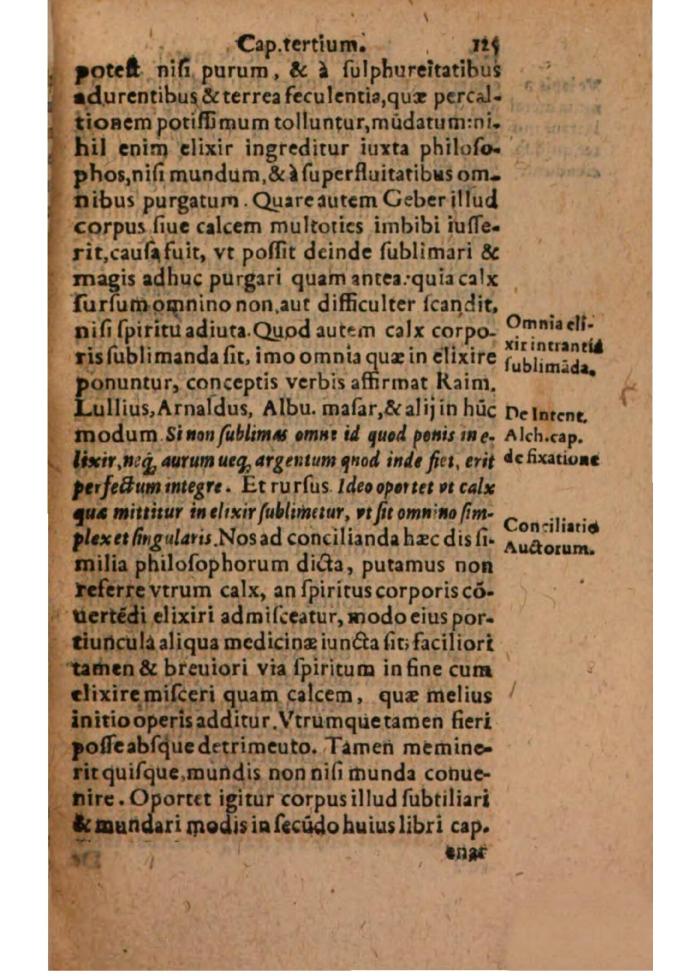 Cap.tertium. 125
poteſt niſi purum, & à ſulphureitatibus
adurentibus & terrea feculentia,quæ percal-
tionem potiſſimum tolluntur,mũdatum:ni-
hil enim elixir ingreditur iuxta philoſo-
phos,niſi mundum,& à ſuperfluitatibus om-
nibus purgatum. Quare autem Geber illud
corpus ſiue calcem multoties imbibi iuſſe-
rit,cauſa fuit, vt poſſit deinde ſublimari &
magis adhuc purgari quam antea: quia calx
ſurſum omnino non,aut difficulter ſcandit,
niſi ſpiritu adiuta. Quod autem calx corpo-
ris ſublimanda ſit, imo omnia quæ in elixire
ponuntur, conceptis verbis affirmat Raim.
Lullius, Arnaldus, Albu. maſar,& alij in hũc
modum. Si non ſublimas omne id quod ponis in e-
lixir,neq, aurum ueq, argentum qnod inde fiet, erit
perfectum integre. Et rurſus. Ideo oportet vt calx
quæ mittitur in elixir ſublimetur, vt ſit omnino ſim-
plex et ſingularis. Nos ad concilianda hæc diſſi-
milia philoſophorum dicta, putamus non
referre vtrum calx, an ſpiritus corporis cõ-
uertẽdi elixiri admiſceatur, modo eius por-
tiuncula aliqua medicinæ iuncta ſit; faciliori
tamen & breuiori via ſpiritum in fine cum
elixire miſceri quam calcem, quæ melius
initio operis additur. Vtrumque tamen fieri
poſſe abſque detrimeuto. Tamen memine-
rit quiſque,mundis non niſi munda conue-
nire. Oportet igitur corpus illud ſubtiliari
& mundari modis in ſecũdo huius libri cap.
enar
Omnia eli-
xir intrantia
ſublimãda.
De Intent.
Alch.cap.
de fixatione
Conciliatio
Auctorum.